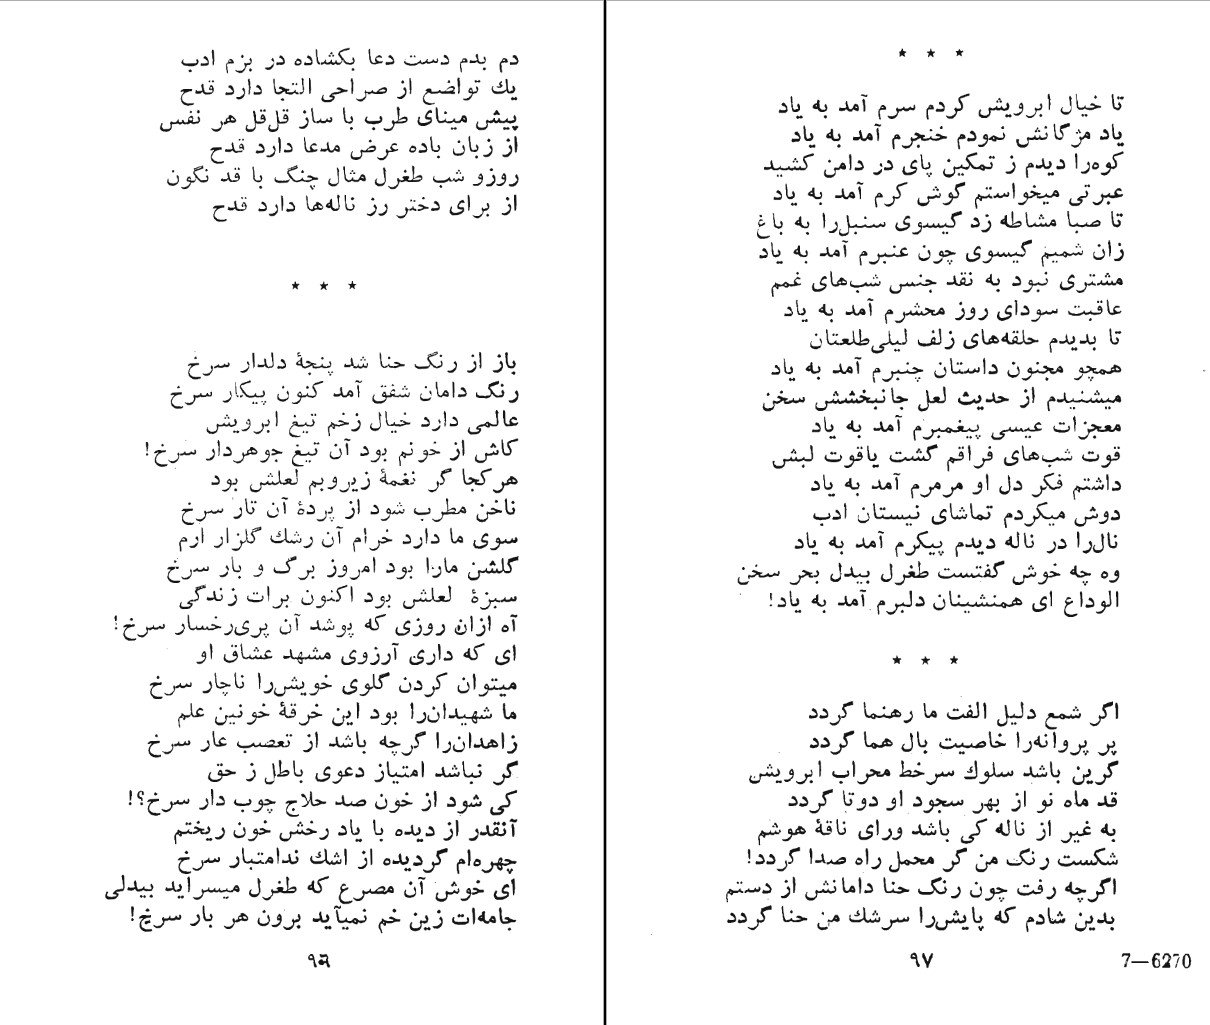 دم بدم دست دعا بکشاده در بزم ادب
یك تواضع از صراحی التجا دارد قدح
پیش مینای طرب با ساز قل‌قل هر نفس
از زبان باده عرض مدعا دارد قدح
روزو شب طغرل مثال چنگ با قد نگون
از برای دختر رز ناله‌ها دارد قدح
* * *
باز از رنگ حنا شد پنجهٔ دلدار سرخ
رنگ دامان شفق آمد کنون پیکار سرخ
عالمی دارد خیال زخم تیغ ابرویش
کاش از خونم بود آن تیغ جوهردار سرخ!
هرکجا گر نغمهٔ زیروبم لعلش بود
ناخن مطرب شود از پردهٔ آن تار سرخ
سوی ما دارد خرام آن رشك گلزار ارم
گلشن مارا بود امروز برگ و بار سرخ
سبزهٔ لعلش بود اکنون برات زندگی
آه ازان روزی که پوشد آن پری‌رخسار سرخ!
ای که داری آرزوی مشهد عشاق او
میتوان کردن گلوی خویش‌را ناچار سرخ
ما شهیدان‌را بود این خرقهٔ خونین علم
زاهدان‌را گرچه باشد از تعصب عار سرخ
گر نباشد امتیاز دعوی باطل ز حق
کی شود از خون صد حلاج چوب دار سرخ؟!
آنقدر از دیده با یاد رخش خون ریختم
چهره‌ام گردیده از اشك ندامتبار سرخ
ای خوش آن مصرع که طغرل میسراید بیدلی
جامه‌ات زین خم نمیآید برون هر بار سرخ!
٩٦
* * *
تا خیال ابرویش کردم سرم آمد به یاد
یاد مژگانش نمودم خنجرم آمد به یاد
کوه‌را دیدم ز تمکین پای در دامن کشید
عبرتی میخواستم گوش کرم آمد به یاد
تا صبا مشاطه زد گیسوی سنبل‌را به باغ
زان شمیم گیسوی چون عنبرم آمد به یاد
مشتری نبود به نقد جنس شب‌های غمم
عاقبت سودای روز محشرم آمد به یاد
تا بدیدم حلقه‌های زلف لیلی‌طلعتان
همچو مجنون داستان چنبرم آمد به یاد
میشنیدم از حدیث لعل جانبخشش سخن
معجزات عیسی پیغمبرم آمد به یاد
قوت شب‌های فراقم گشت یاقوت لبش
داشتم فکر دل او مرمرم آمد به یاد
دوش میکردم تماشای نیستان ادب
نال‌را در ناله دیدم پیکرم آمد به یاد
وه چه خوش گفتست طغرل بیدل بحر سخن
الوداع ای همنشینان دلبرم آمد به یاد!
* * *
اگر شمع دلیل الفت ما رهنما گردد
پر پروانه‌را خاصیت بال هما گردد
گرین باشد سلوك سرخط محراب ابرویش
قد ماه نو از بهر سجود او دوتا گردد
به غیر از ناله کی باشد ورای ناقهٔ هوشم
شکست رنگ من گر محمل راه صدا گردد!
اگرچه رفت چون رنگ حنا دامانش از دستم
بدین شادم که پایش‌را سرشك من حنا گردد
٩٧
7—6270